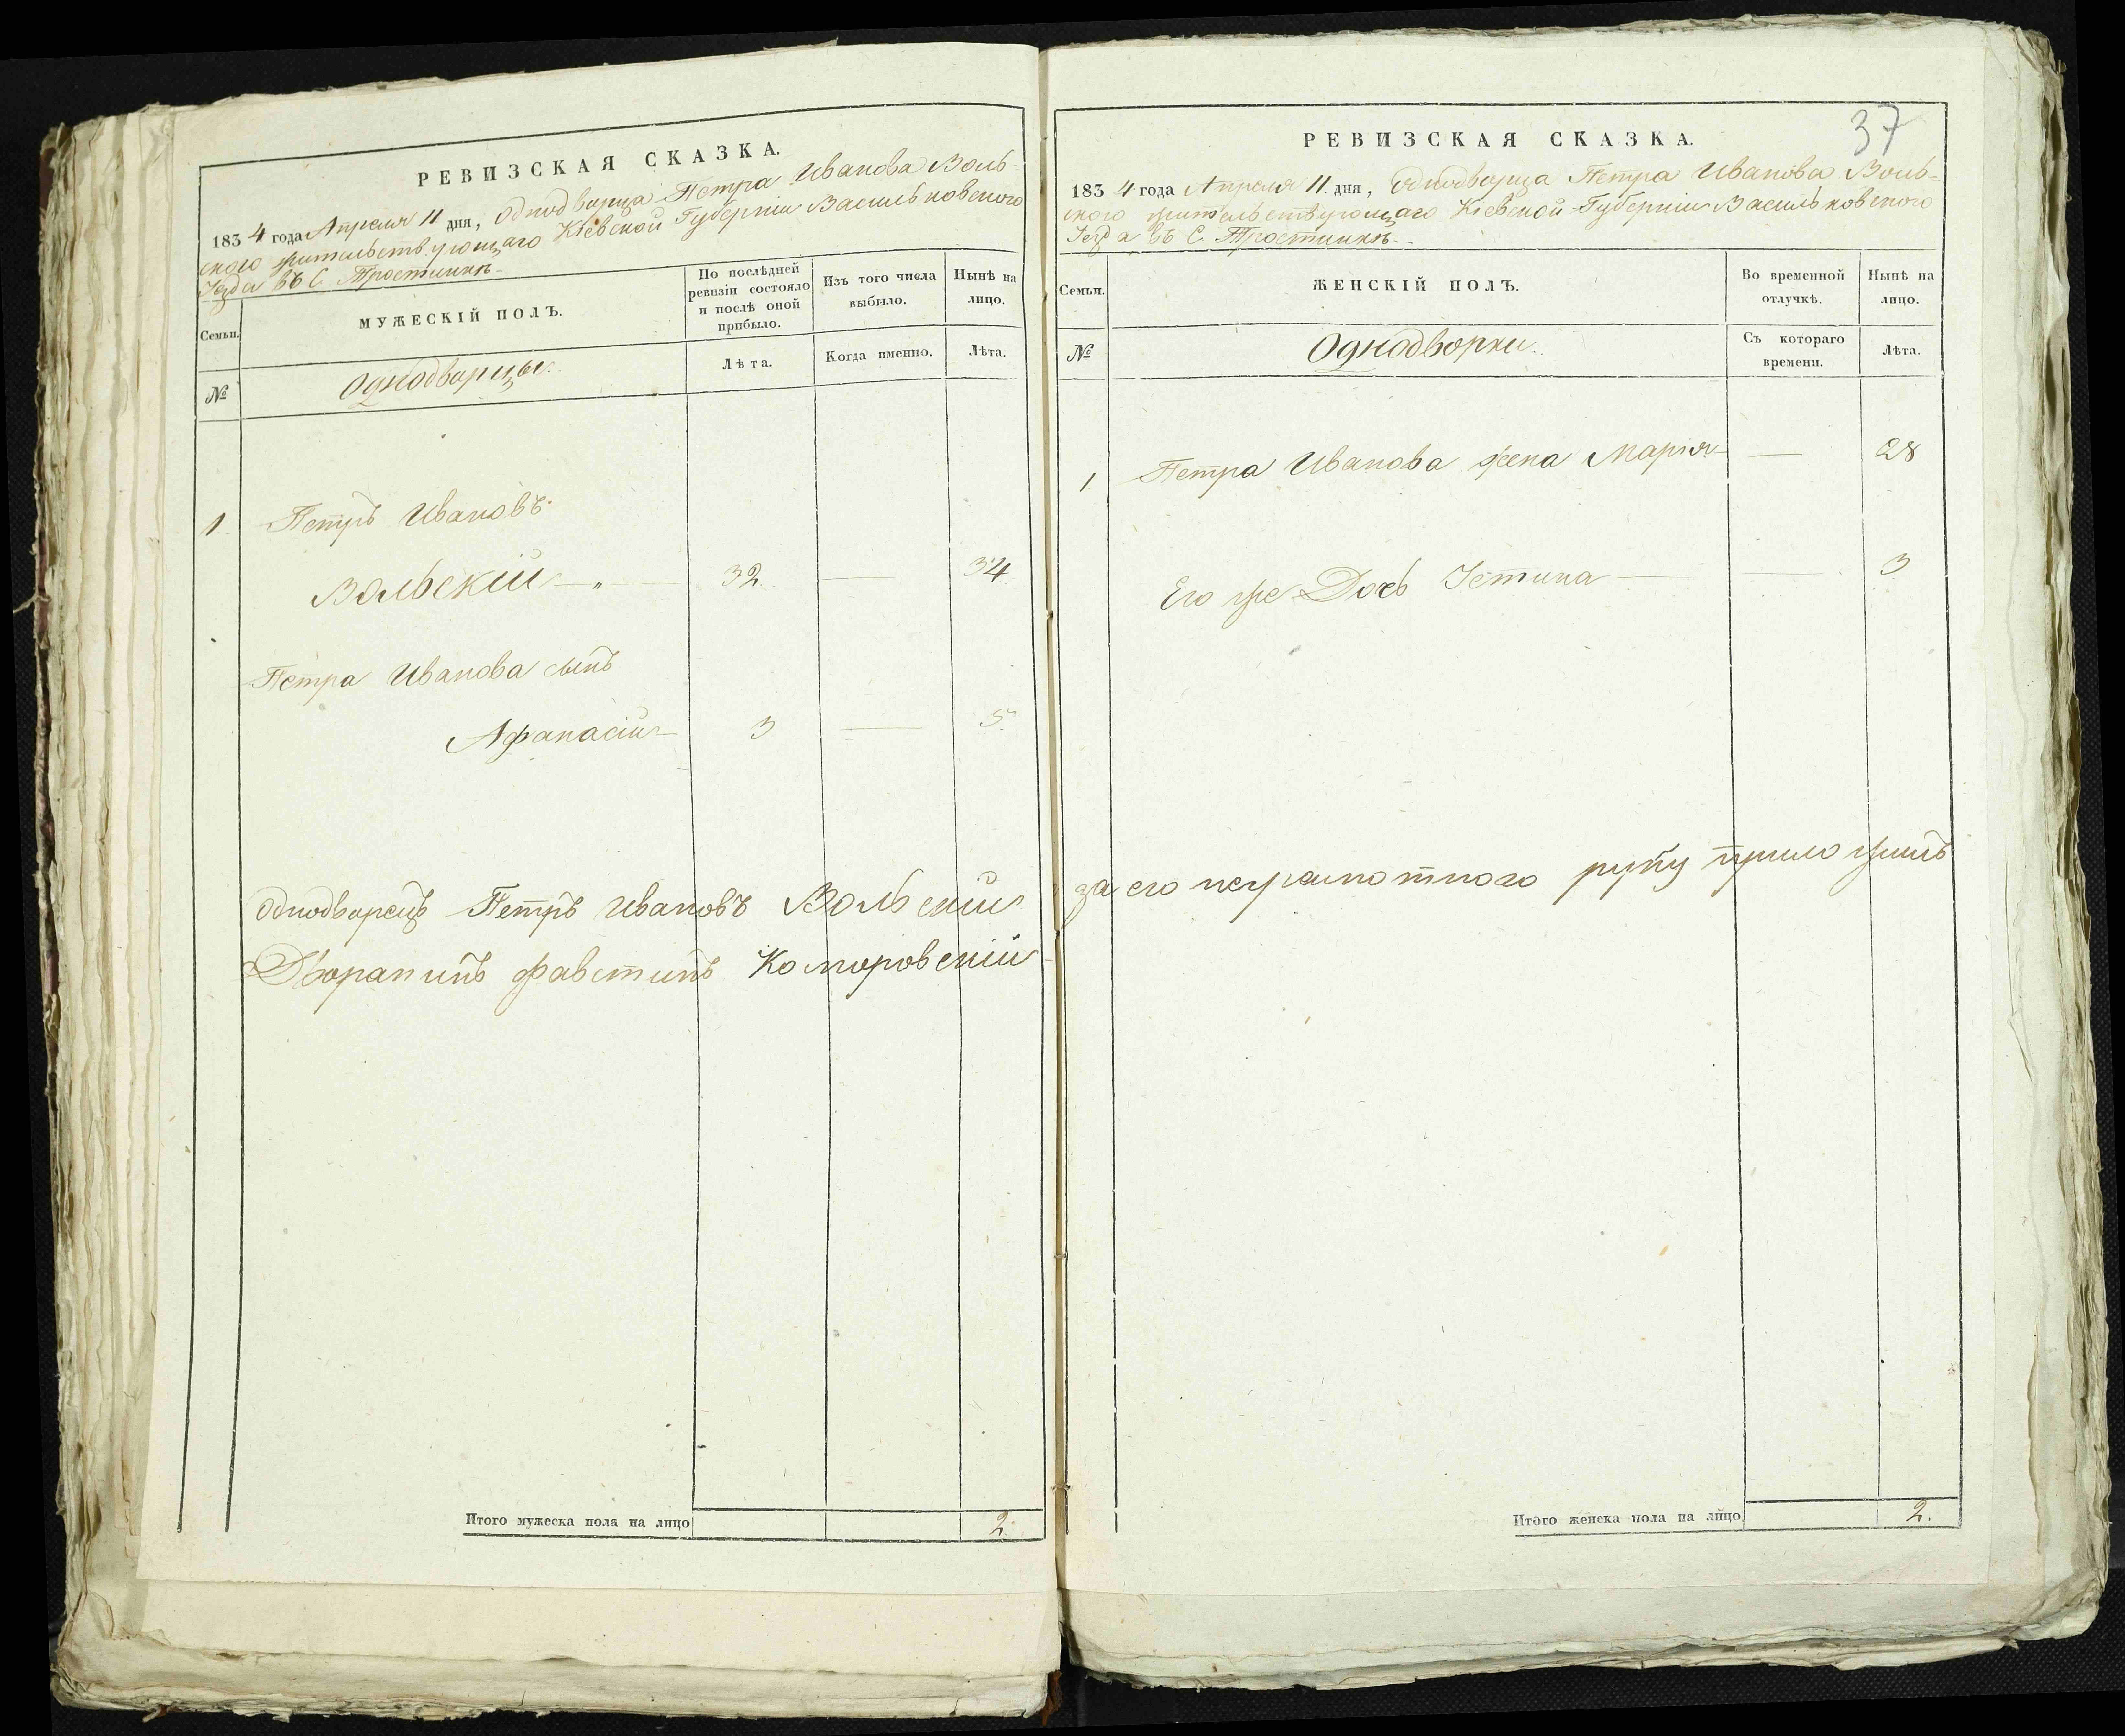 РЕВИЗСКАЯ СКАЗКА.
1834 года Апреля 11 дня, Однодворца Петра Иванова Воль-
ского жительствующаго Кіевской Губерніи Васильковского
Уезда въ С. Тростинкѣ.
Семьи.
МУЖЕСКІЙ ПОЛЪ.
По послѣдней
ревизіи состояло
и послѣ оной
прибыло.
Изъ того числа
выбыло.
Нынѣ на
лицо.
№
Однодворцы.
Лѣта.
Когда именно.
Лѣта.
1
Петръ Ивановъ
Вольскій — 32. — 34
Петра Иванова сынъ
Афанасій — 3 — 5.
Однодворецъ Петръ Ивановъ Вольскій
Дворанинъ Фавстинъ Коморовскій
Итого мужеска пола на лицо 2.
37
РЕВИЗСКАЯ СКАЗКА.
1834 года Апреля 11 дня, Однодворца Петра Иванова Воль-
ского жительствующаго Кіевской Губерніи Васильковского
Уезда въ С. Тростинкѣ.
Семьи.
ЖЕНСКІЙ ПОЛЪ.
Во временной
отлучкѣ.
Нынѣ на
лицо.
№
Однодворки.
Съ котораго
времени.
Лѣта.
1 Петра Иванова жена Марія — 28
Его же Дочь Устина — — 3
за его неграмотного руку приложилъ
Итого женска пола на лицо 2.